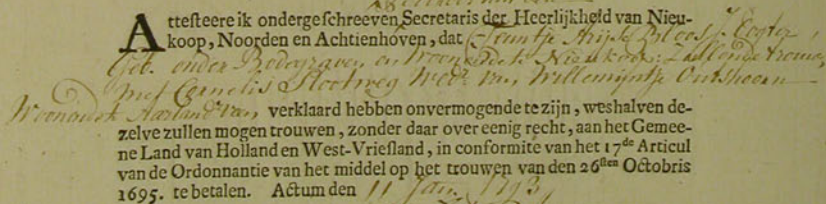 Attesteere ik ondergeschreeven Secretaris der Heerlijkheid van Nieu-
koop, Noorden en Achtienhoven, dat Trijntje Arijsz Bloos J. Dogter
Geb. onder Bodegraven en Woonende te Nieukoop: Zullende trouwe
met Cornelis Slootweg Wedr. van Willemijntje Outshoorn
Woonende Aarlanderveen, verklaard hebben onvermogende te zijn, weshalven de-
zelve zullen mogen trouwen, zonder daar over eenig recht, aan het Gemee-
ne Land van Holland en West-Vriesland, in conformite van het 17de Articul
van de Ordonnantie van het middel op het trouwen van den 26sten Octobris
1695. te betalen. Actum den 11 Jan. 1793